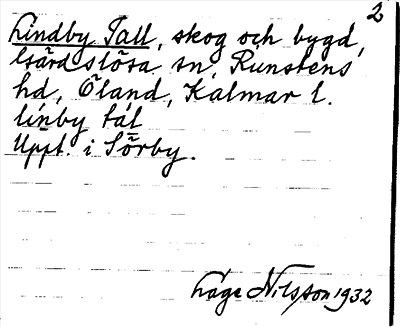 2
Lindby Tall, skog och bygd,
Gärdslösa sn, Runstens
hd, Öland, Kalmar l.
linby tál
Uppt. i Sörby.
Låge Nilsson 1932